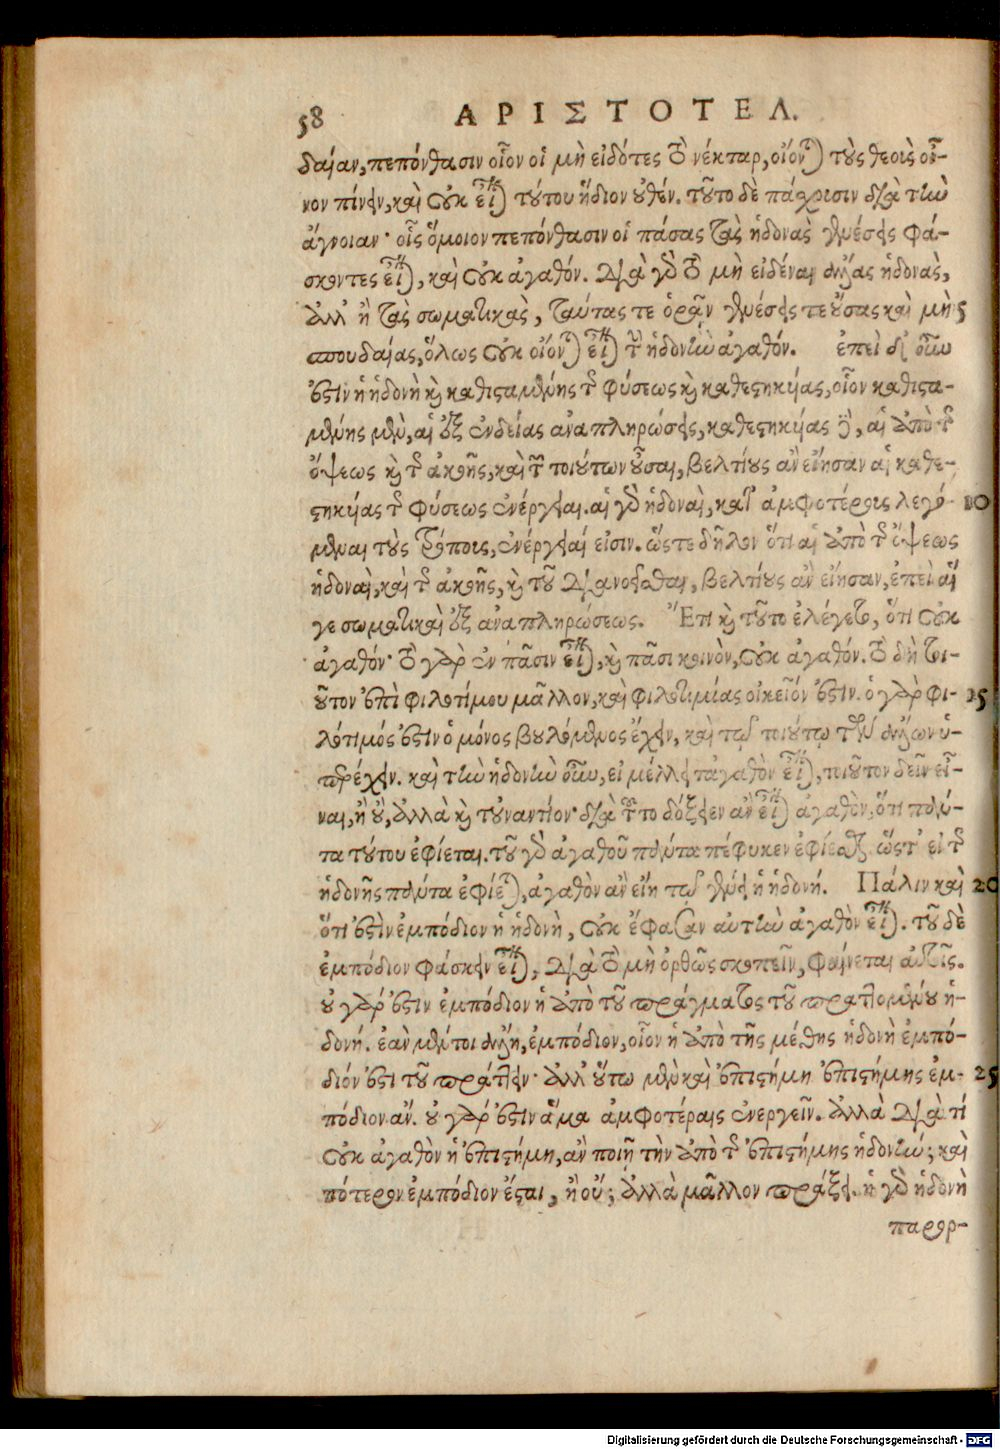 58 ΑΡΙΣΤΟΤΕΛ.
δαίαν, πεπόνθασιν οἷον οἱ μὴ εἰδότες τὸ νέκταρ, οἴονται τοὺς θεοὺς οἶ-
νον πίνειν, καὶ οὐκ εἶναι τούτου ἥδιον οὐθέν. τοῦτο δὲ πάσχουσιν διὰ τὴν
ἄγνοιαν· οἷς ὅμοιον πεπόνθασιν οἱ πάσας τὰς ἡδονὰς γενέσεις φά-
σκοντες εἶναι, καὶ οὐκ ἀγαθόν. διὰ γὰρ τὸ μὴ εἰδέναι ἄλλας ἡδονὰς,
ἀλλ' ἢ τὰς σωματικὰς, ταύτας τε ὁρᾶν γενέσεις τε οὔσας καὶ μὴ 5
σπουδαίας, ὅλως οὐκ οἴονται εἶναι τὴν ἡδονὴν ἀγαθόν. ἐπεὶ δὲ οὖν
ἐστὶν ἡ ἡδονὴ καὶ καθισταμένης τῆς φύσεως καὶ καθεστηκυίας, οἷον καθιστα-
μένης μὲν, αἱ ἐξ ἐνδείας ἀναπληρώσεις, καθεστηκυίας δὲ, αἱ ἀπὸ τῆς
ὄψεως καὶ τῆς ἀκοῆς, καὶ τῶν τοιούτων οὖσαι, βελτίους ἂν εἴησαν αἱ καθε-
στηκυίας τῆς φύσεως ἐνέργειαι. αἱ γὰρ ἡδοναὶ, κατ' ἀμφοτέρους λεγό- 10
μεναι τοὺς τρόπους, ἐνέργειαί εἰσιν. ὥστε δῆλον ὅτι αἱ ἀπὸ τῆς ὄψεως
ἡδοναὶ, καὶ τῆς ἀκοῆς, καὶ τοῦ διανοεῖσθαι, βελτίους ἂν εἴησαν, ἐπεὶ αἵ
γε σωματικαὶ ἐξ ἀναπληρώσεως. Ἔτι καὶ τοῦτο ἐλέγετο, ὅτι οὐκ
ἀγαθόν· τὸ γὰρ ἐν πᾶσιν εἶναι, καὶ πᾶσι κοινὸν, οὐκ ἀγαθόν. τὸ δὴ τοι-
οῦτον ἐπὶ φιλοτίμου μᾶλλον, καὶ φιλοτιμίας οἰκεῖόν ἐστιν. ὁ γὰρ φι- 15
λότιμός ἐστιν ὁ μόνος βουλόμενος ἔχειν, καὶ τῷ τοιούτῳ τῶν ἄλλων ὑ-
περέχειν. καὶ τὴν ἡδονὴν οὖν, εἰ μέλλει τἀγαθὸν εἶναι, τοιοῦτον δεῖν εἶ-
ναι, ἢ οὔ, ἀλλὰ καὶ τοὐναντίον· διὰ τοῦτο δόξειεν ἂν εἶναι ἀγαθὸν, ὅτι πάν-
τα τούτου ἐφίεται. τοῦ γὰρ ἀγαθοῦ πάντα πέφυκεν ἐφίεσθαι. ὥστ' εἰ τῆς
ἡδονῆς πάντα ἐφίεται, ἀγαθὸν ἂν εἴη τῷ γένει ἡ ἡδονή. Πάλιν καὶ 20
ὅτι ἐστὶν ἐμπόδιον ἡ ἡδονὴ, οὐκ ἔφασαν αὐτὴν ἀγαθὸν εἶναι. τοῦ δὲ
ἐμπόδιον φάσκειν εἶναι, διὰ τὸ μὴ ὀρθῶς σκοπεῖν, φαίνεται αὐτοῖς.
οὐ γάρ ἐστιν ἐμπόδιον ἡ ἀπὸ τοῦ πράγματος τοῦ πραττομένου ἡ-
δονή. ἐὰν μέντοι ἄλλη, ἐμπόδιον, οἷον ἡ ἀπὸ τῆς μέθης ἡδονὴ ἐμπό-
διόν ἐστι τοῦ πράττειν· ἀλλ' οὕτω μὲν καὶ ἐπιστήμη ἐπιστήμης ἐμ- 25
πόδιον ἄν. οὐ γάρ ἐστιν ἅμα ἀμφοτέραις ἐνεργεῖν. ἀλλὰ διὰ τί
οὐκ ἀγαθὸν ἡ ἐπιστήμη, ἂν ποιῇ τὴν ἀπὸ τῆς ἐπιστήμης ἡδονήν; καὶ
πότερον ἐμπόδιον ἔσται, ἢ οὔ; ἀλλὰ μᾶλλον πράξει. ἡ γὰρ ἡδονὴ
παρορ-
Digitalisierung gefördert durch die Deutsche Forschungsgemeinschaft - DFG